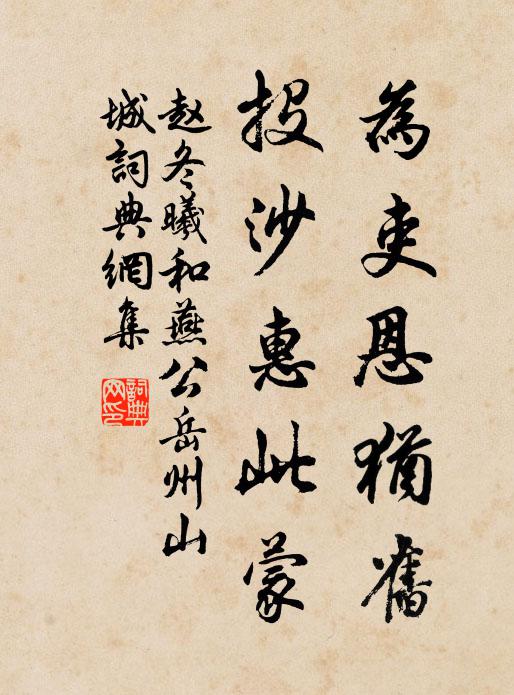 為吏恩猶舊
投沙惠此蒙
赵冬曦和燕公岳州山
城詞典網集
詞典
网印